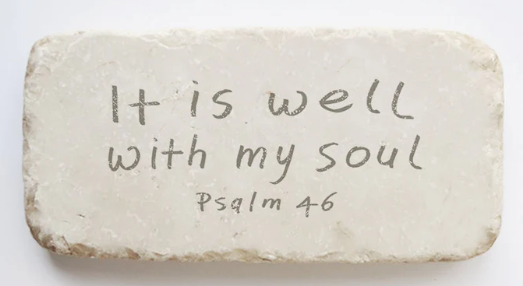 It is well
with my soul
Psalm 46